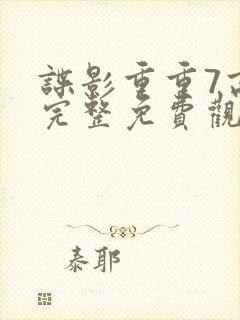 諜影重重7高
完整免費觀
泰耶